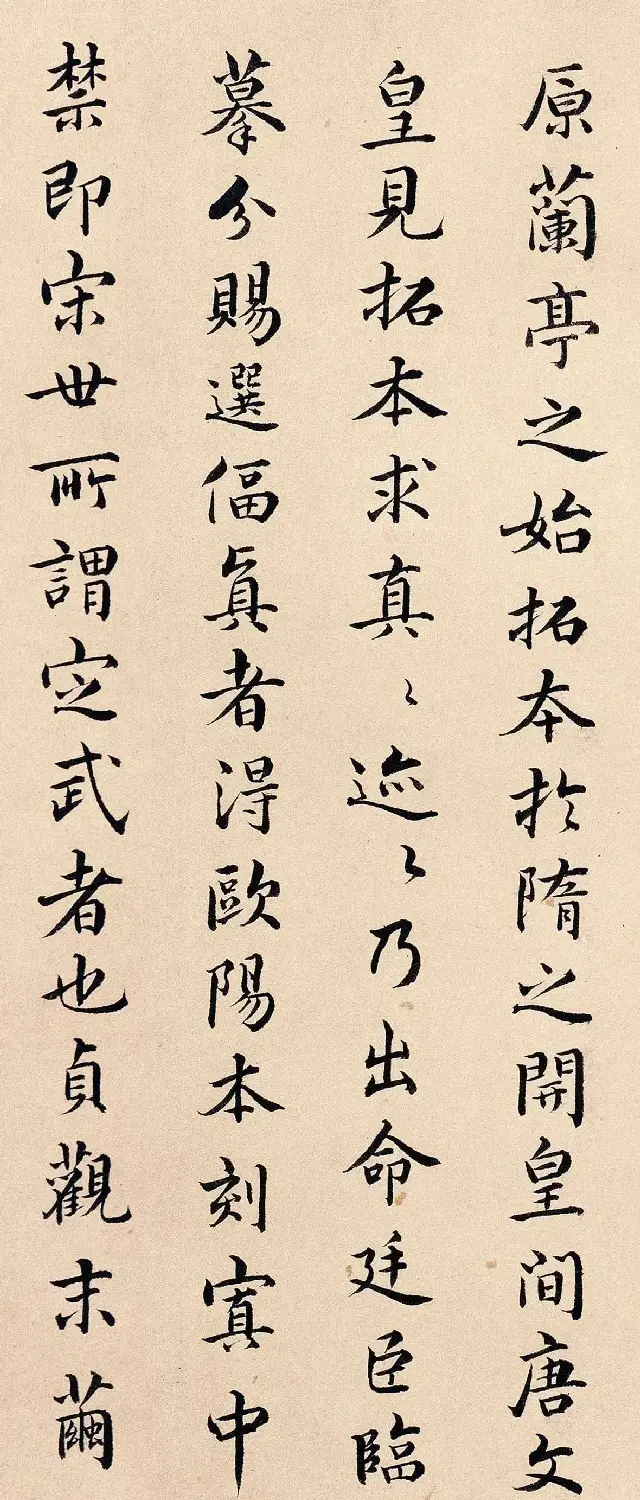 原蘭亭之始拓本於隋之開皇間唐文
皇見拓本求真〻迹〻乃出命廷臣臨
摹分賜選偪眞者得歐陽本刻寘中
禁即宋世所謂定武者也貞觀末繭